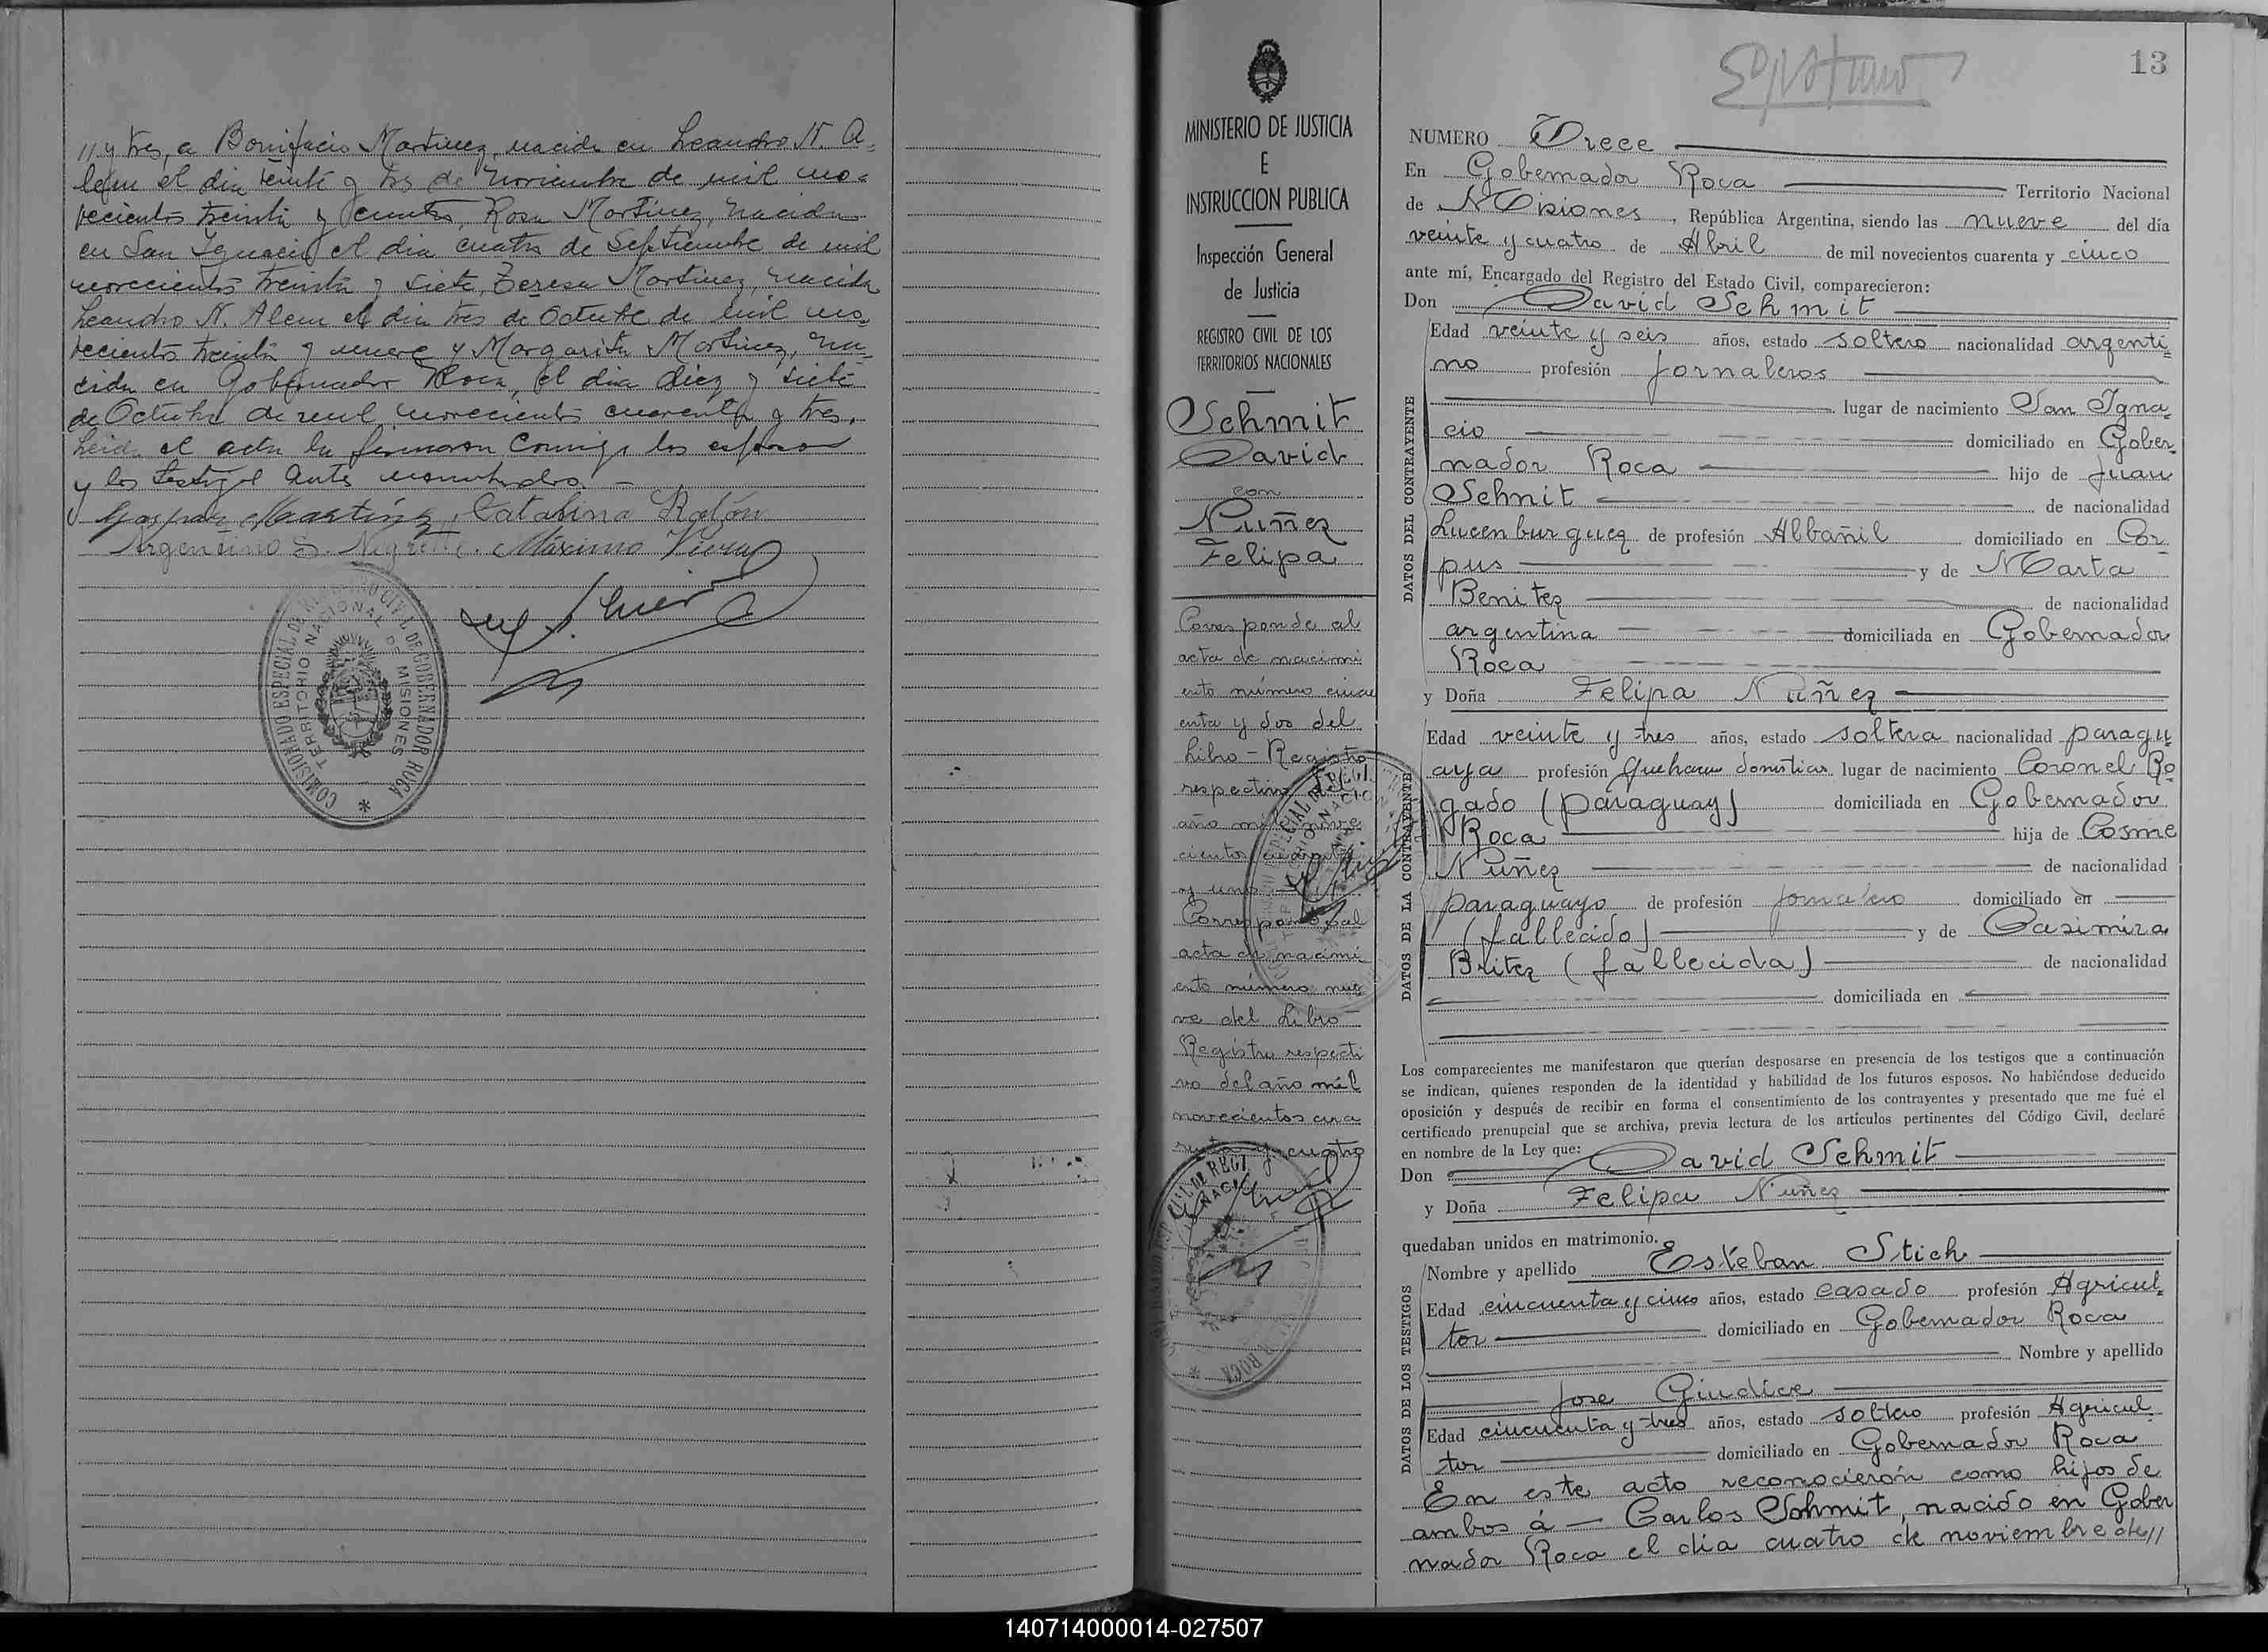 // y tres, a Bonifacio Martinez, nacido en Leandro N. A=
lem el dia veinte y tres de Noviembre de mil no=
vecientos treinta y cuatro, Rosa Martinez, nacida
en San Ignacio el dia cuatro de Septiembre de mil
novecientos treinta y siete, Teresa Martinez, nacida
Leandro N. Alem el dia tres de Octubre de mil no=
vecientos treinta y nueve y Margarita Martinez, na=
cida en Gobernador Roca, el dia diez y siete
de Octubre de mil novecientos cuarenta y tres.
Leida el acta la firmaron conmigo los esposos
y los testigos antes nombrados. —
Gaspar Martinez, Catalina Ratón
Argentino S. Negrette. Máximo Viera
COMISIONADO ESPECIAL DE REGISTRO CIVIL DE GOBERNADOR ROCA
TERRITORIO NACIONAL DE MISIONES
MINISTERIO DE JUSTICIA
E
INSTRUCCION PUBLICA
Inspección General
de Justicia
REGISTRO CIVIL DE LOS
TERRITORIOS NACIONALES
Schmit
David
con
Nuñez
Felipa
Corresponde al
acta de nacimi
ento número cincu
enta y dos del
Libro - Registro
respectivo del
año mil nove
cientos cuarenta
y uno
Corresponde al
acta de nacimi
ento número nue
ve del Libro
Registro respecti
vo del año mil
novecientos cua
renta y cuatro
13
NUMERO Trece
En Gobernador Roca Territorio Nacional
de Misiones, República Argentina, siendo las nueve del día
veinte y cuatro de Abril de mil novecientos cuarenta y cinco
ante mí, Encargado del Registro del Estado Civil, comparecieron:
Don David Schmit
DATOS DEL CONTRAYENTE
Edad veinte y seis años, estado soltero nacionalidad argenti=
no profesión Jornaleros
lugar de nacimiento San Igna=
cio domiciliado en Gober=
nador Roca hijo de Juan
Schnit de nacionalidad
Lucenburguez de profesión Albañil domiciliado en Cor=
pus y de Marta
Benitez de nacionalidad
argentina domiciliada en Gobernador
Roca
y Doña Felipa Nuñez
DATOS DE LA CONTRAYENTE
Edad veinte y tres años, estado soltera nacionalidad paragu=
aya profesión Quehaceres domésticos lugar de nacimiento Coronel Bo=
gado (Paraguay) domiciliada en Gobernador
Roca hija de Cosme
Nuñez de nacionalidad
paraguayo de profesión jornalero domiciliado en
(fallecido) y de Casimira
Britez (fallecida) de nacionalidad
domiciliada en
Los comparecientes me manifestaron que querían desposarse en presencia de los testigos que a continuación
se indican, quienes responden de la identidad y habilidad de los futuros esposos. No habiéndose deducido
oposición y después de recibir en forma el consentimiento de los contrayentes y presentado que me fué el
certificado prenupcial que se archiva, previa lectura de los artículos pertinentes del Código Civil, declaré
en nombre de la Ley que:
Don David Schmit
y Doña Felipa Nuñez
quedaban unidos en matrimonio.
DATOS DE LOS TESTIGOS
Nombre y apellido Esteban Stich
Edad cincuenta y cinco años, estado casado profesión Agricul=
tor domiciliado en Gobernador Roca
Nombre y apellido
Jose Giudice
Edad cincuenta y tres años, estado soltero profesión Agricul=
tor domiciliado en Gobernador Roca
En este acto reconocierón como hijos de
ambos á — Carlos Schmit, nacido en Gober
nador Roca el dia cuatro de noviembre de//
140714000014-027507